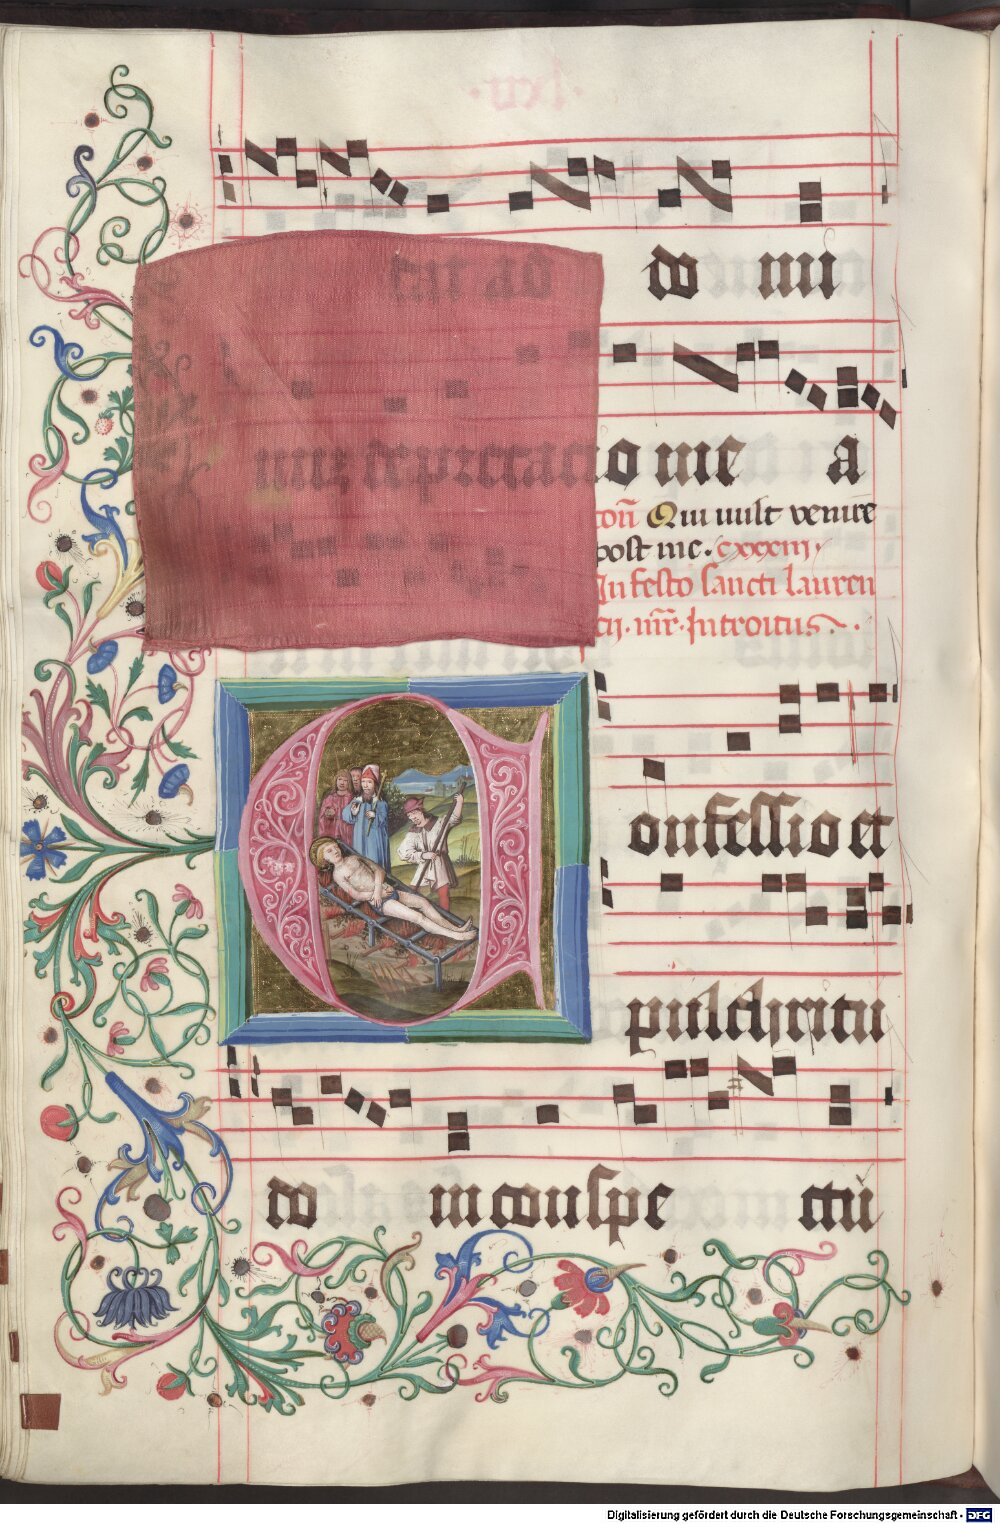 do mi
o me a
coñ Qui uult venire
post me. cxxxiij.
In festo sancti lauren
cij. mr̃r. Introitus.
onfessio et
pulchritu
do in conspe ctu
Digitalisierung gefördert durch die Deutsche Forschungsgemeinschaft - DFG